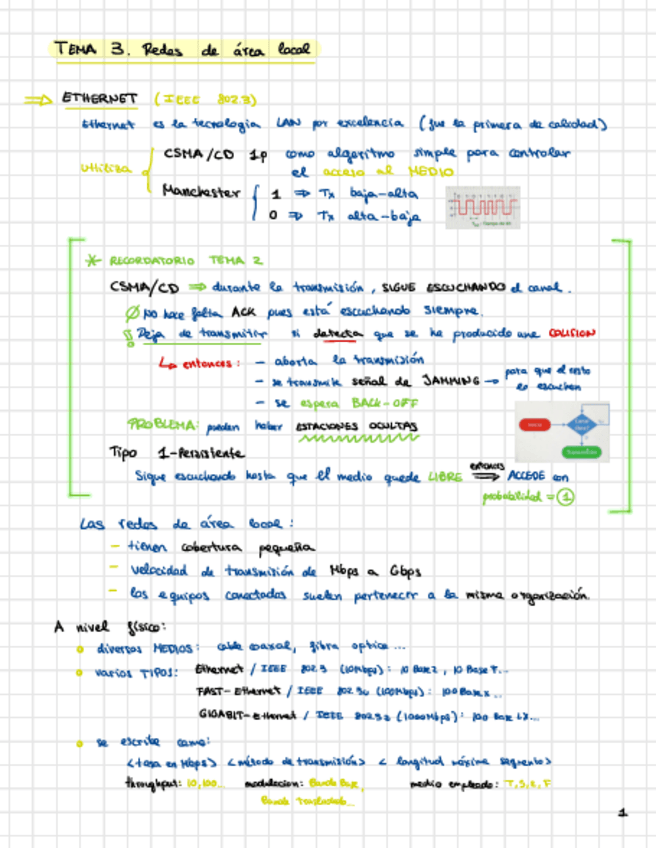 TEMA 3. Redes de área local
⇒ ETHERNET (IEEE 802.3)
Ethernet es la tecnología LAN por excelencia (fue la primera de calidad)
Utiliza
CSMA/CD 1p como algoritmo simple para controlar
el acceso al MEDIO
Manchester
1 ⇒ Tx baja-alta
0 ⇒ Tx alta-baja
* RECORDATORIO TEMA 2
CSMA/CD ⇒ durante la transmisión, SIGUE ESCUCHANDO el canal.
No hace falta ACK pues está escuchando siempre.
Deja de transmitir si detecta que se ha producido una COLISION
↳ entonces: - aborta la transmisión
- se transmite señal de JAMMING → para que el resto
lo escuchen
- se espera BACK-OFF
PROBLEMA: pueden haber ESTACIONES OCULTAS
Tipo 1-Persistente
Sigue escuchando hasta que el medio quede LIBRE entonces ⇒ ACCEDE con
probabilidad = 1
Las redes de área local:
- tienen cobertura pequeña
- velocidad de transmisión de Mbps a Gbps
- los equipos conectados suelen pertenecer a la misma organización.
A nivel físico:
diversos MEDIOS: cable coaxial, fibra optica...
varios TIPOS: Ethernet / IEEE 802.3 (10Mbps): 10 Base2, 10 Base T...
FAST-Ethernet / IEEE 802.3u (100Mbps): 100 Base x...
GIGABIT-Ethernet / IEEE (1000Mbps):
se escribe como:
<tasa en Mbps> <método de transmisión> < longitud máxima segmento>
throughput: 10, 100... modulacion: Banda Base, medio empleado:
Banda Trasladada...
1